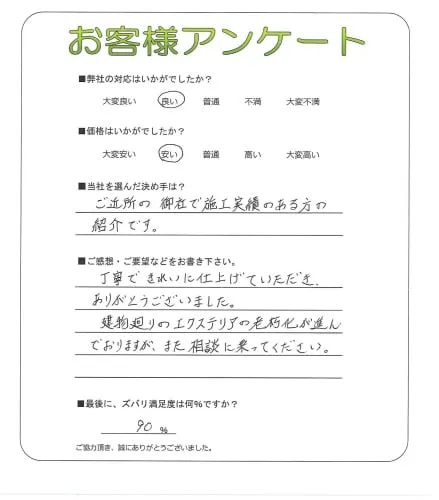 お客様アンケート
■弊社の対応はいかがでしたか？
大変良い 良い 普通 不満 大変不満
■価格はいかがでしたか？
大変安い 安い 普通 高い 大変高い
■当社を選んだ決め手は？
ご近所の 御社で施工実績のある方の
紹介です。
■ご感想・ご要望などをお書き下さい。
丁寧できれいに仕上げていただき、
ありがとうございました。
建物廻りのエクステリアの老朽化が進ん
でおりますが、また相談に乗ってください。
■最後に、ズバリ満足度は何%ですか？
90 %
ご協力頂き、誠にありがとうございました。